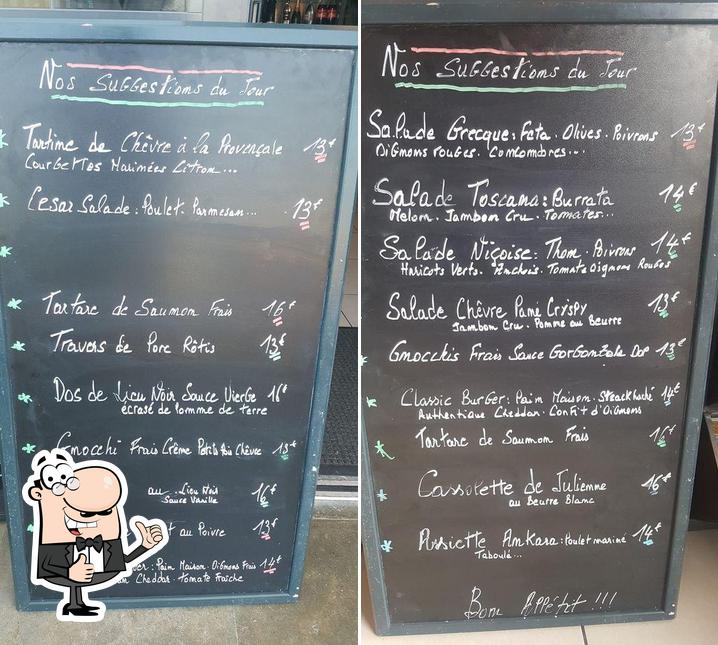 Nos Suggestions du Jour
Tartine de Chèvre à la Provençale 13€
Courgettes Marinées Citron...
Cesar Salade: Poulet. Parmesan... 13€
Tartare de Saumon Frais 16€
Travers de Porc Rôtis 13€
Dos de Lieu Noir Sauce Vierge 16€
écrasé de Pomme de terre
Gnocchi Frais Crème Petits Pois Chèvre 13€
au Lieu Noir 16€
Sauce Vanille
au Poivre 13€
: Pain Maison. Oignons Frais 14€
Cheddar. Tomate Fraîche
Nos Suggestions du Jour
Salade Grecque: Feta. Olives. Poivrons 13€
Oignons rouges. Concombres...
Salade Toscana: Burrata 14€
Melon. Jambon Cru. Tomates...
Salade Niçoise: Thon. Poivrons 14€
Haricots Verts. Anchois. Tomate Oignons Rouges
Salade Chèvre Pané Crispy 13€
Jambon Cru. Pomme au Beurre
Gnocchis Frais Sauce Gorgonzola DOP 13€
Classic Burger: Pain Maison. Steack haché 14€
Authentique Cheddar. Confit d'Oignons
Tartare de Saumon Frais 16€
Cassolette de Julienne 16€
au Beurre Blanc
Assiette Ankara: Poulet mariné 14€
Taboulé...
Bon Appétit !!!